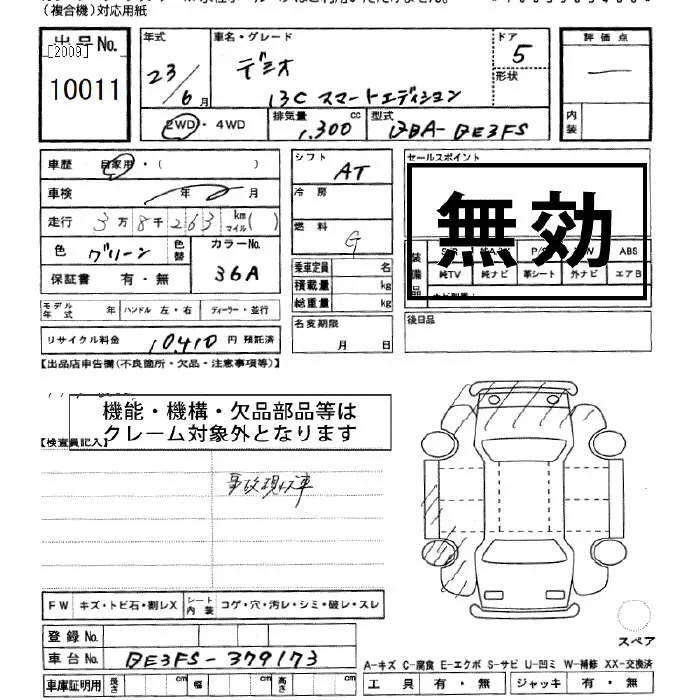 (複合機)対応用紙
出品No.
[2009]
10011
年式
23/6月
車名・グレード
デミオ
13C スマートエディション
ドア
5
形状
評価点
—
内装
2WD・4WD
排気量 1,300 cc
型式 DBA-DE3FS
車歴 自家用・( )
車検 年 月
走行 3万8千263 km マイル( )
色 グリーン
色替
カラーNo.
36A
保証書 有・無
モデル年式 年 ハンドル 左・右 ディーラー・並行
リサイクル料金 10,410 円 預託済
シフト AT
冷房
燃料 G
乗車定員 名
積載量 kg
総重量 kg
名変期限
月 日
セールスポイント
無効
装備品
ABS
純TV 純ナビ 革シート 外ナビ エアB
後日品
【出品店申告欄(不良箇所・欠品・注意事項等)】
機能・機構・欠品部品等は
クレーム対象外となります
【検査員記入】
事故現状車
FW キズ・トビ石・割レX シート内装 コゲ・穴・汚レ・シミ・破レ・スレ
登録No.
車台No. DE3FS-379173
車庫証明用 長さ cm 幅 cm 高さ cm
スペア
A-キズ C-腐食 E-エクボ S-サビ U-凹ミ W-補修 XX-交換済
工具 有・無 ジャッキ 有・無